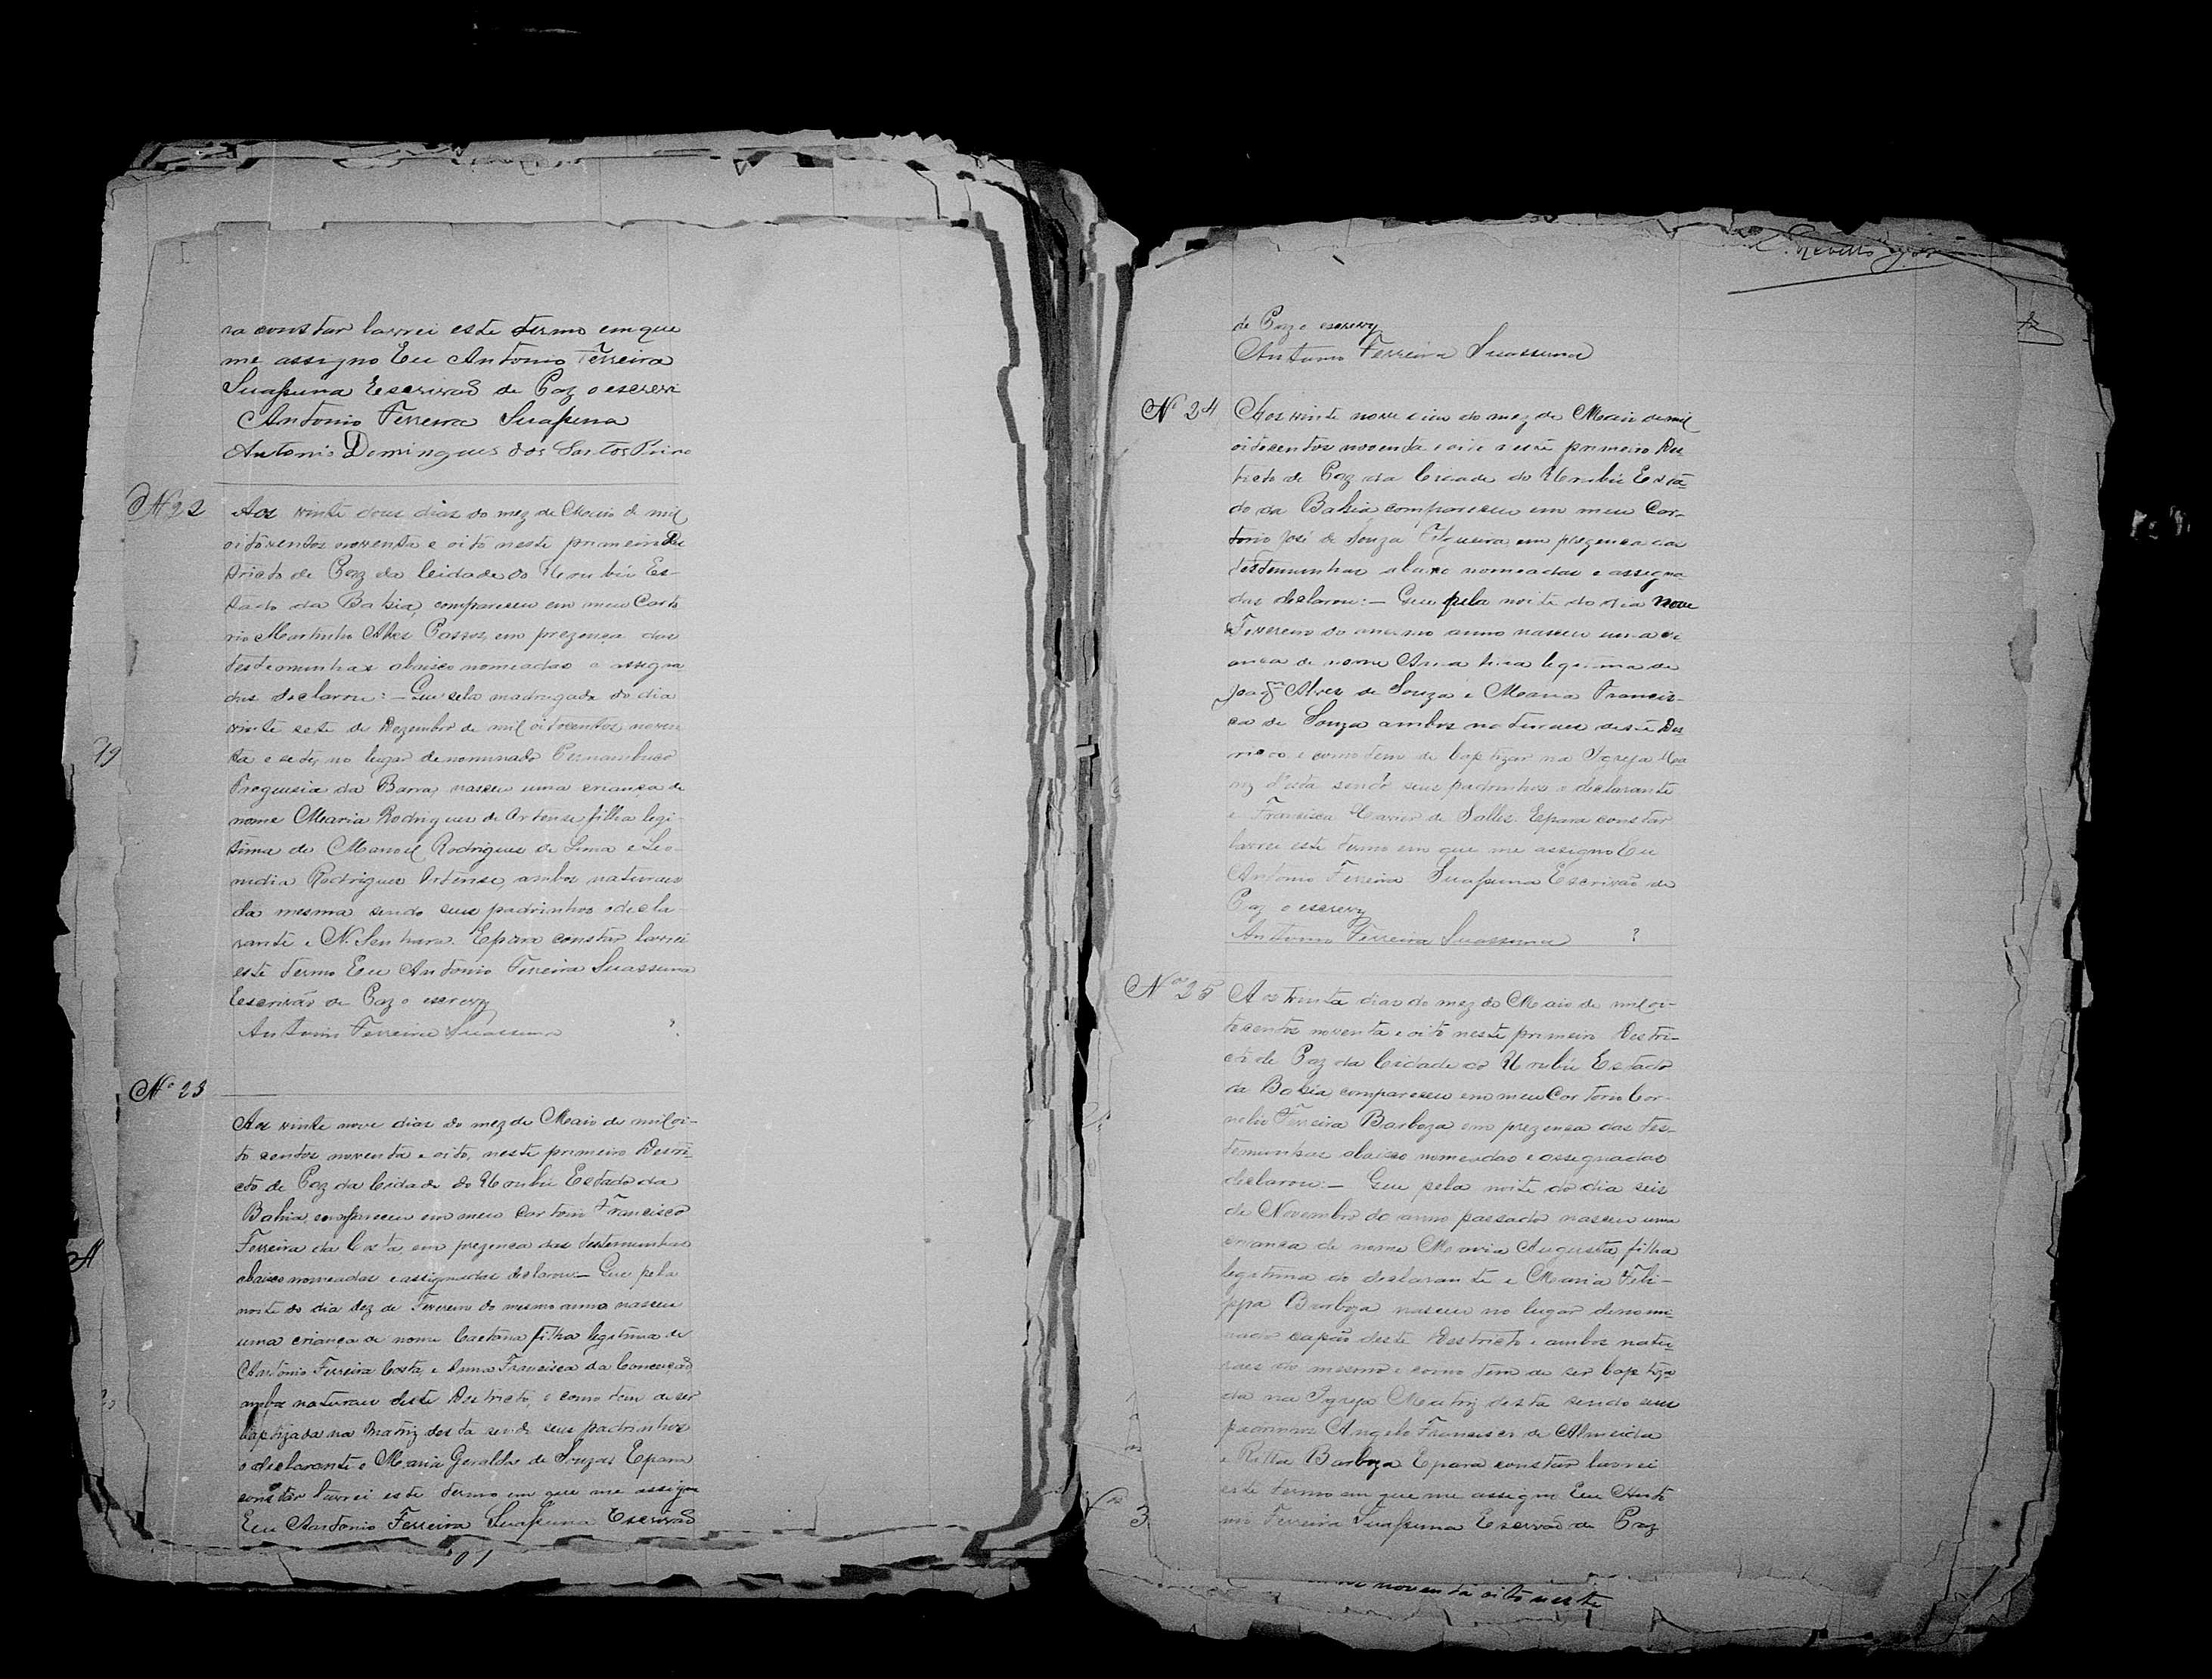 ra constar lavrei este termo em que
me assigno Eu Antonio Ferreira
Suassuna Escrivaõ de Paz o escrevi
Antonio Ferreira Suassuna
Antonio Domingues dos Santos
Nº 22
Aos vinte dous dias do mez de Maio de mil
oitocentos noventa e oito neste primeiro Des
tricto de Paz da Cidade do Urubú Es-
tado da Bahia, compareceu em meu Carto
rio Martinho Alves Passos, em prezença das
testemunhas abaixo nomeadas e assigna
das declarou: – Que pela madrugada do dia
vinte sete de Dezembro de mil oitocentos noven
ta e sete, no lugar denominado Pernambuco
Freguesia da Barra, nasceu uma criança de
nome Maria Rodrigues de Ortense filha legi-
tima de Manoel Rodrigues de Lima e Leo-
nidia Rodrigues Ortense, ambos naturaes
da mesma sendo seus padrinhos o decla-
rante e N. Senhora. E para constar lavrei
este termo Eu Antonio Ferreira Suassuna
Escrivaõ de Paz o escrevy
Antonio Ferreira Suassuna ?
Nº 23
Aos vinte nove dias do mez de Maio de mil oi-
to centos noventa e oito, neste primeiro Destri-
cto de Paz da Cidade do Urubú Estado da
Bahia, compareceu em meu Cartorio Francisco
Ferreira da Costa, em prezença das testemunhas
abaixo nomeadas e assignadas declarou – Que pela
noite do dia dez de Fevereiro do mesmo anno nasceu
uma criança de nome Caetana filha legitima de
Antonio Ferreira Costa, e Anna Francisca da Conceição,
ambos naturaes deste Destricto, e como tem de ser
baptizada na Matriz desta sendo seus padrinhos
o declarante e Maria Geralda de Souza. E para
constar lavrei este termo em que me assigno
Eu Antonio Ferreira Suassuna Escrivaõ
de Paz o escrevy
Antonio Ferreira Suassuna
Nº 24
Aos vinte nove dias do mez de Maio de mil
oitocentos noventa e oito neste primeiro Des
tricto de Paz da Cidade do Urubú Esta
do da Bahia compareceu em meu Car-
torio José de Souza em prezença das
testemunhas abaixo nomeadas e assigna
das declarou: – Que pela noite do dia nove
Fevereiro do mesmo anno nasceu uma cri
ança de nome Anna filha legitima de
Alves de Souza e Maria Francis-
ca de Souza ambos naturaes deste Des
tricto e como tem de baptizar na Igreja Ma
triz desta sendo seus padrinhos o declarante
e Francisca Xavier de Salles. E para constar
lavrei este termo em que me assigno Eu
Antonio Ferreira Suassuna Escrivaõ de
Paz o escrevy
Antonio Ferreira Suassuna ?
Nº 25
Aos trinta dias do mez de Maio de mil oi-
tocentos noventa e oito neste primeiro Destri-
cto de Paz da Cidade do Urubú Estado
da Bahia compareceu em meu Cartorio Cor-
nelio Ferreira Barboza em prezença das tes-
temunhas abaixo nomeadas e assignadas
declarou: – Que pela noite do dia seis
de Novembro do anno passado nasceu uma
criança de nome Maria Augusta filha
legitima do declarante e Maria Feli-
ppa Barboza nasceu no lugar denomi-
nado capão deste Destricto e ambos natu-
raes do mesmo e como tem de ser baptiza
da na Igreja Matriz desta sendo seus
padrinhos Angelo Francisco de Almeida
e Ritta Barboza E para constar lavrei
este termo em que me assigno Eu Anto
nio Ferreira Suassuna Escrivaõ de Paz
noventa oito neste